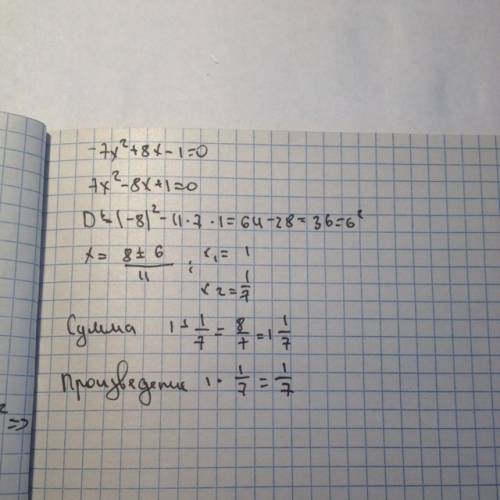 -7x²+8x-1=0
7x²-8x+1=0
D=(-8)²-4·7·1=64-28=36=6²
x= 8±6/14 ; x₁=1
x₂=1/7
Сумма 1+1/7=8/7=1 1/7
Произведение 1·1/7=1/7
²=>